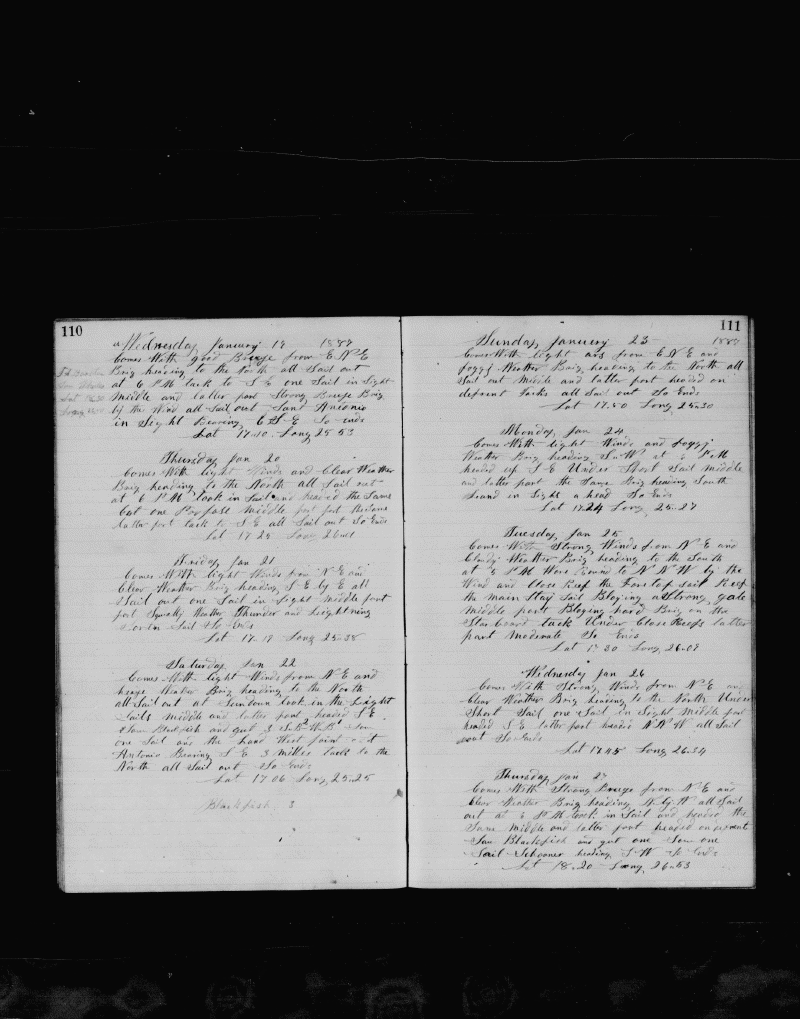 110
Wednesday January 19 1887
Comes With good Breeze from E N E
Brig heading to the North all Sail out
at 6 P M tack to S E one Sail in Sight
Middle and latter part Strong Breeze Brig
by the Wind all Sail out Sant Antonio
in Sight Bearing E S E So ends
Lat 17-10 Long 25-53
Thursday Jan 20
Comes With light Winds and Clear Weather
Brig heading to the North all Sail out
at 6 P M took in Sail and headed the Same
Middle part the Same
latter part tack to S E all Sail out So Ends
Lat 17 25 Long
Friday Jan 21
Comes With light Winds from N E and
Clear Weather Brig heading S E by E all
Sail out one Sail in Sight Middle part
Squally Weather Thunder and Lightning
Sail So Ends
Lat 17-19 Long 25-38
Saturday Jan 22
Comes With light Winds from N E and
Weather Brig heading to the North
all Sail out at Sundown took in the light
Sails Middle and latter part headed S E
Saw Blackfish and got 3
one Sail West point
Antonio Bearing S E 3 miles tack to the
North all Sail out So Ends
Lat 17-06 Long 25-25
Blackfish 3
111
Sunday January 23 1887
Comes With light airs from E N E and
foggy Weather Brig heading to the North all
Sail out Middle and latter part headed on
deferent tacks all Sail out So Ends
Lat 17-50 Long 25-30
Monday Jan 24
Comes With light Winds and foggy
Weather Brig heading at 6 P M
headed up S E Under Short Sail Middle
and latter part the Same Brig heading South
in Sight a head So Ends
Lat 17-24 Long 25-27
Tuesday Jan 25
Comes With Strong Winds from N E and
Cloudy Weather Brig heading to the South
at P M Wore round to N N W by the
Wind and Close Reef the Foretop Sail Reef
the main Stay Sail Bloying a Strong gale
Middle part Bloying hard Brig on the
Starboard tack Under Close Reefs latter
part Moderate So Ends
Lat 17 30 Long 26-09
Wednesdy Jan 26
Comes With Strong Winds from N E an
Clear Weather Brig heading to the North Under
Short Sail one Sail in Sight Middle part
headed S E latter part headed N N W all Sail
out So Ends
Lat 17-45 Long 26-34
Thursday Jan 27
Comes With Strong Breeze from N E and
Clear Weather Brig heading N by W all Sail
out at 6 P M took in Sail and headed the
Same Middle and latter part headed
Saw Blackfish and got one Saw one
Sail Schooner heading S W So Ends
Lat 18-20 Long 26-53